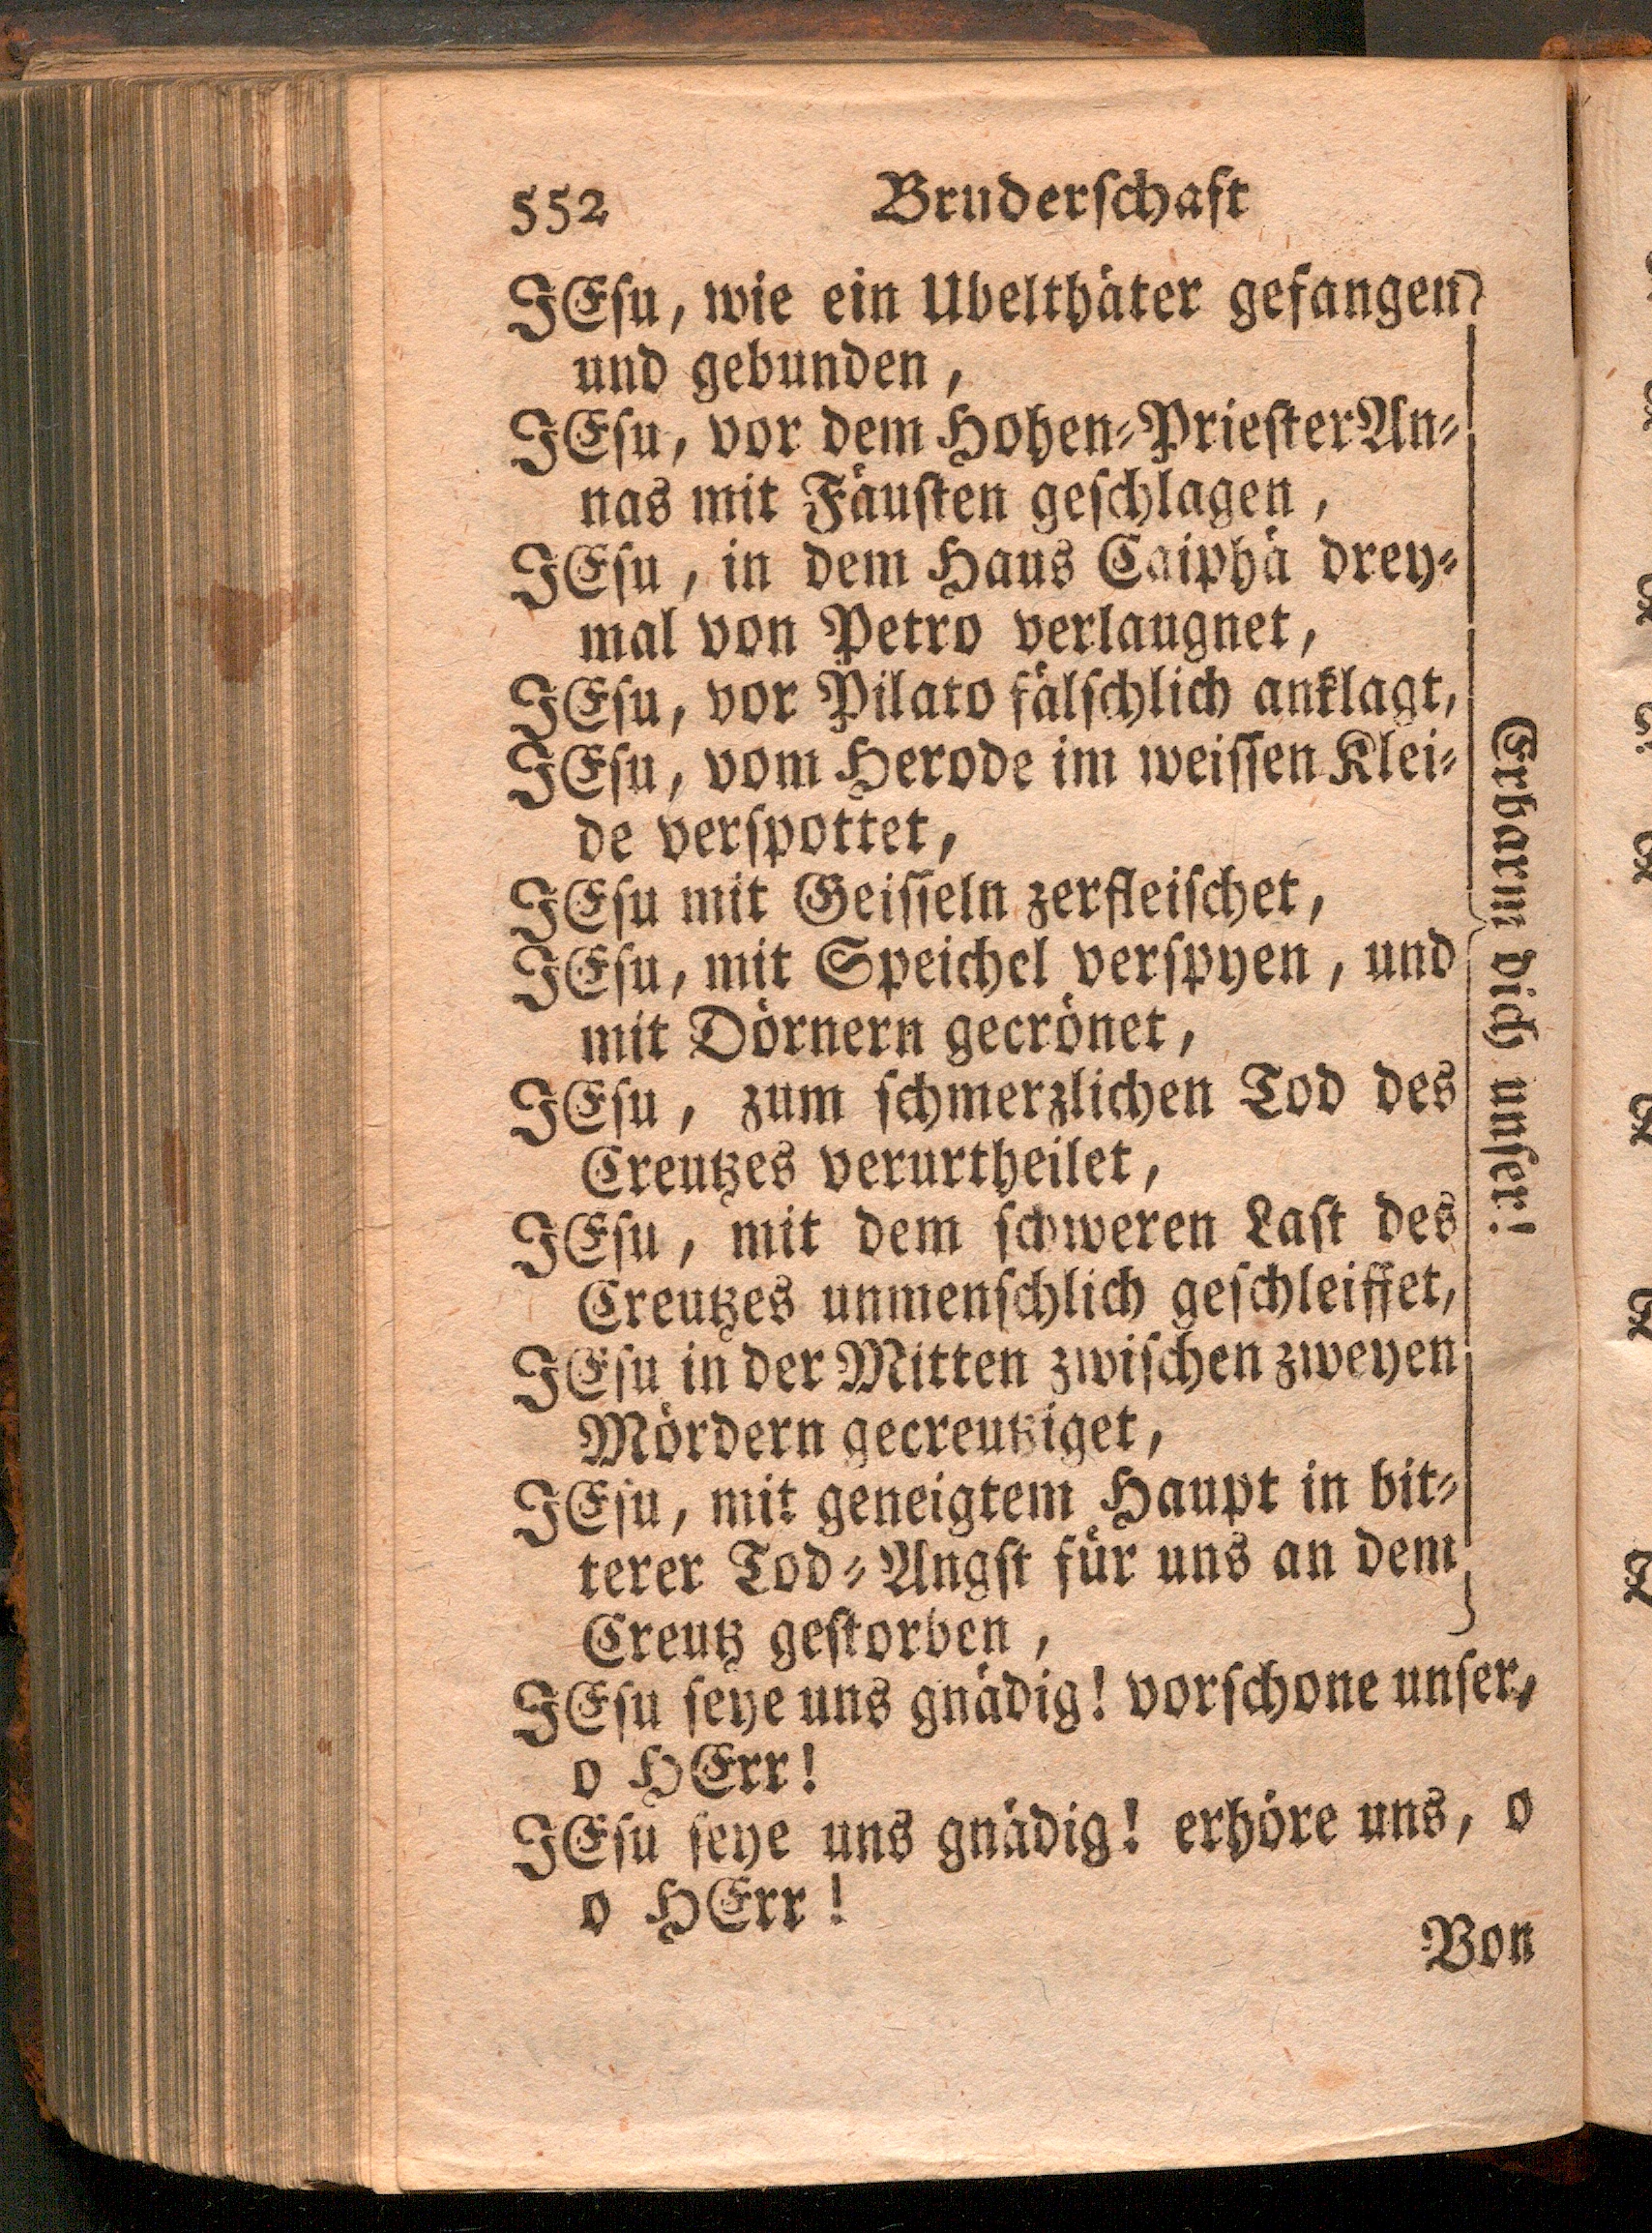 552 Bruderſchaft
JEſu, wie ein Ubelthäter gefangen
und gebunden,
JEſu, vor dem Hohen-Prieſter An-
nas mit Fäuſten geſchlagen,
JEſu, in dem Haus Caiphä drey-
mal von Petro verlaugnet,
JEſu, vor Pilato fälſchlich anklagt,
JEſu, vom Herode im weiſſen Klei-
de verſpottet,
JEſu mit Geiſſeln zerfleiſchet,
JEſu, mit Speichel verſpyen, und
mit Dörnern gecrönet,
JEſu, zum ſchmerzlichen Tod des
Creutzes verurtheilet,
JEſu, mit dem ſchweren Laſt des
Creutzes unmenſchlich geſchleiffet,
JEſu in der Mitten zwiſchen zweyen
Mördern gecreutziget,
JEſu, mit geneigtem Haupt in bit-
terer Tod-Angſt für uns an dem
Creutz geſtorben,
Erbarm dich unſer!
JEſu ſeye uns gnädig! vorſchone unſer,
o HErr!
JEſu ſeye uns gnädig! erhöre uns, o
o HErr!
Von